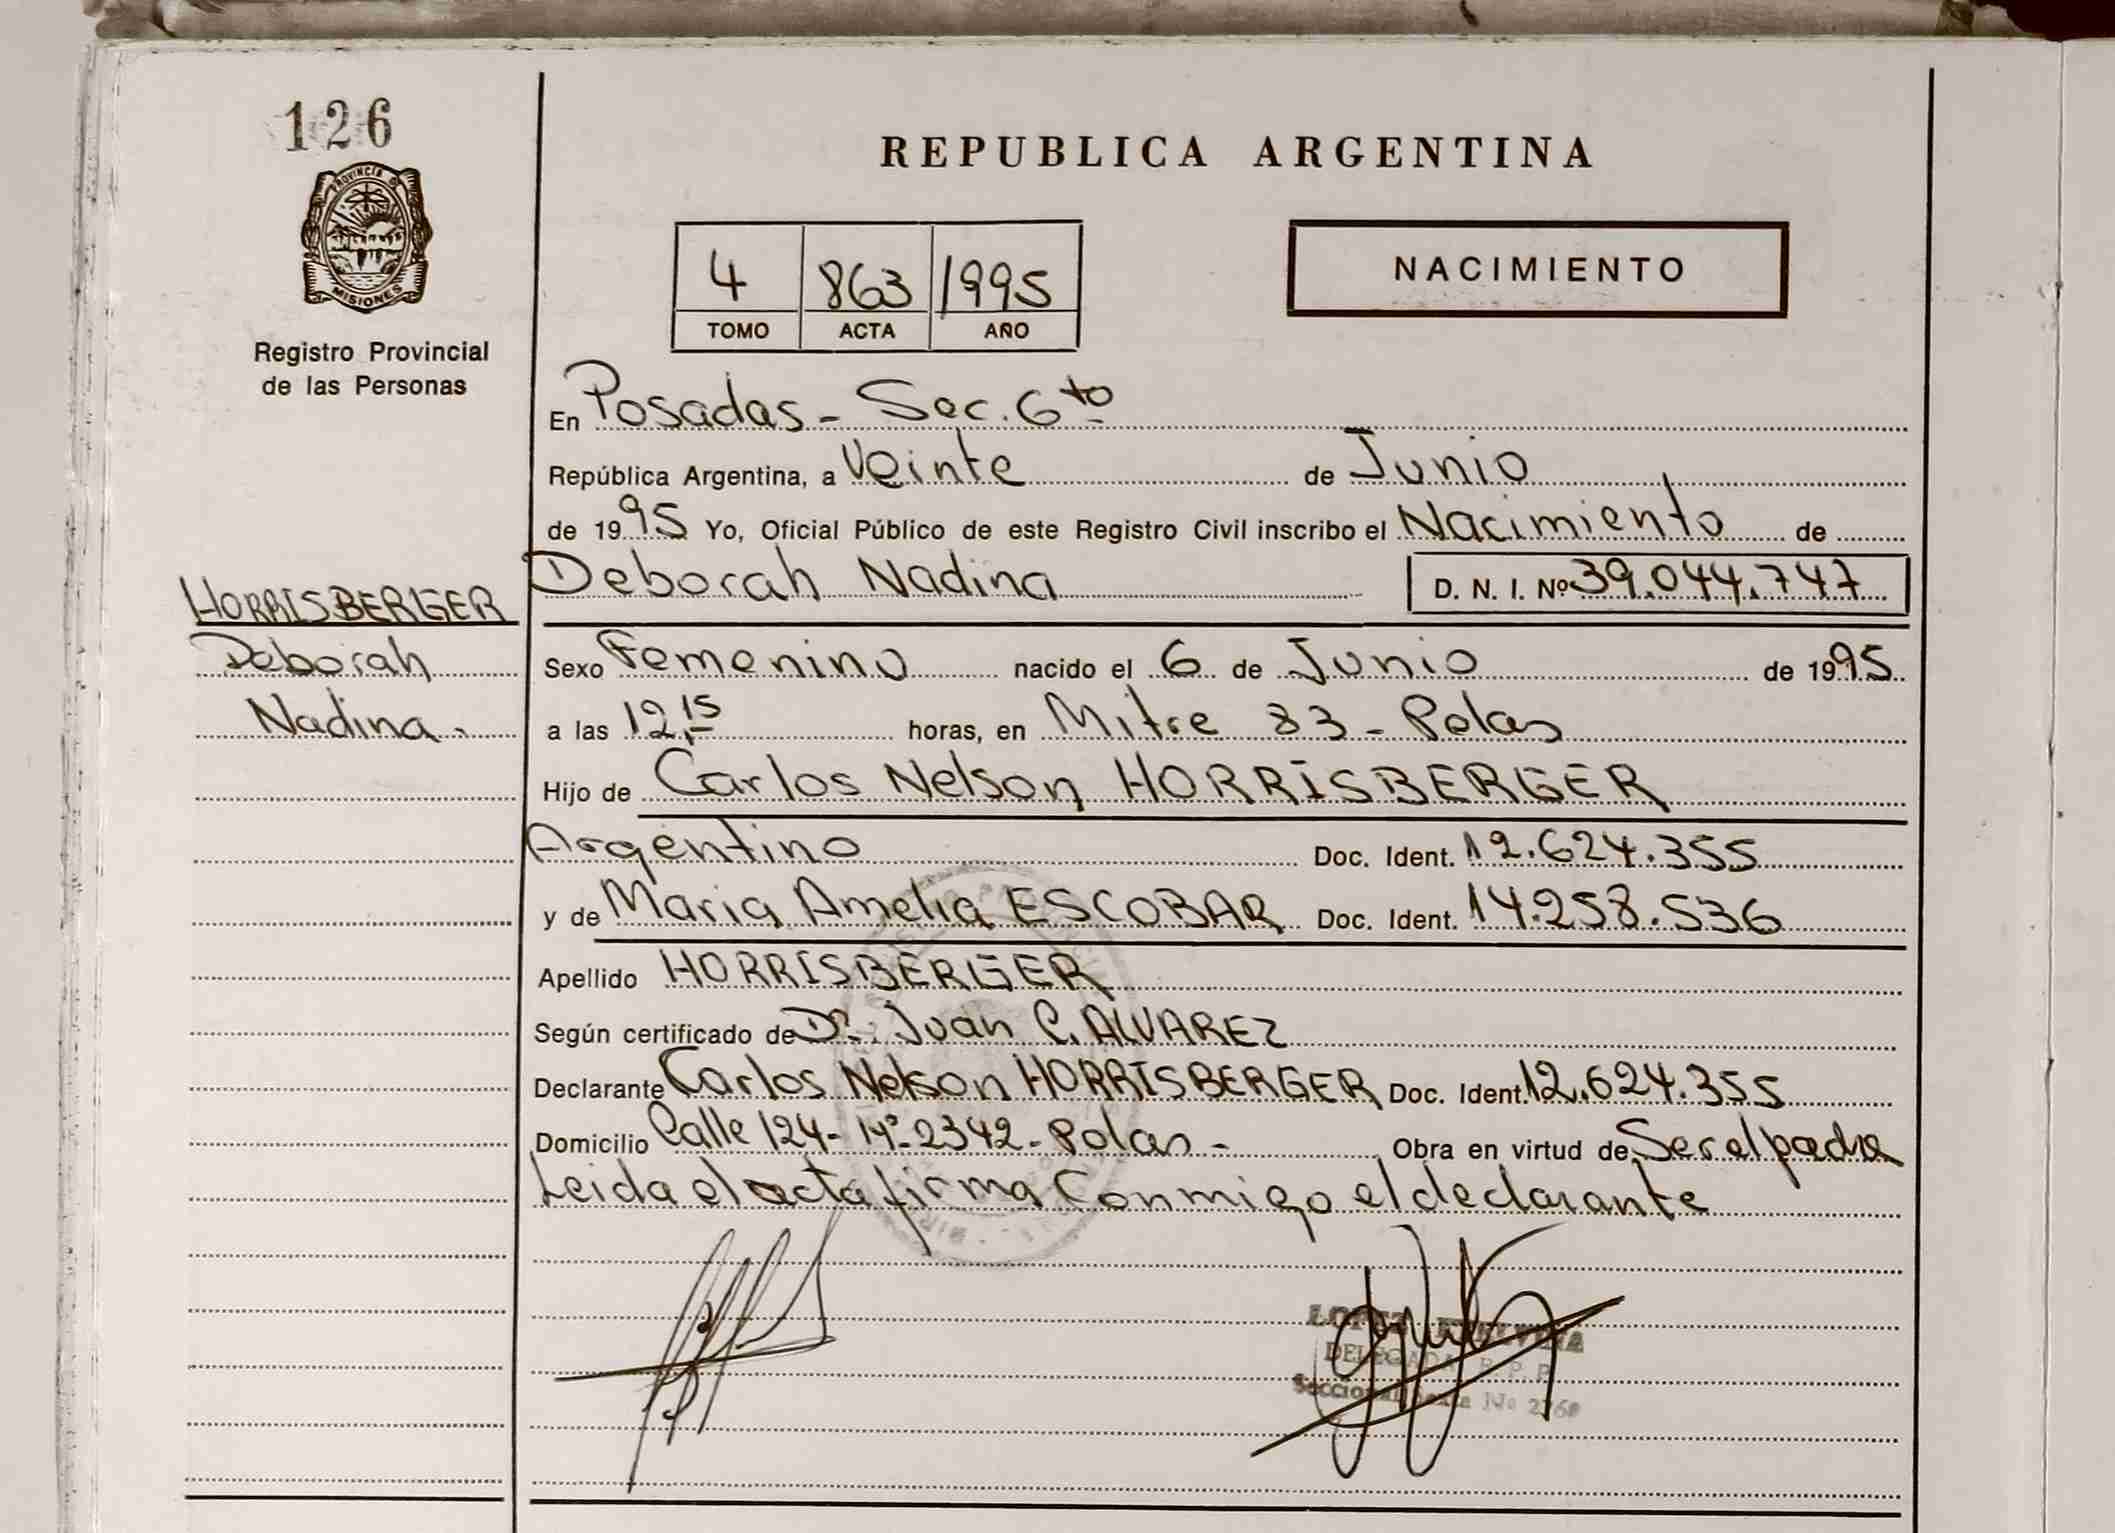 126
PROVINCIA DE
MISIONES
Registro Provincial
de las Personas
REPUBLICA ARGENTINA
4 863 1995
TOMO ACTA AÑO
NACIMIENTO
En Posadas - Sec. 6to
República Argentina, a Veinte de Junio
de 1995 Yo, Oficial Público de este Registro Civil inscribo el Nacimiento de
Deborah Nadina D. N. I. Nº 39.044.747
HORRISBERGER
Deborah
Nadina.
Sexo Femenino nacido el 6 de Junio de 1995
a las 12,15 horas, en Mitre 83 - Pdas
Hijo de Carlos Nelson HORRISBERGER
Argentino Doc. Ident. 12.624.355
y de Maria Amelia ESCOBAR Doc. Ident. 14.258.536
Apellido HORRISBERGER
Según certificado de Dr. Juan C. ALVAREZ
Declarante Carlos Nelson HORRISBERGER Doc. Ident. 12.624.355
Domicilio Calle 124 - Nº 2342 - Pdas - Obra en virtud de Ser el padre
Leida el acta firma Conmigo el declarante
LOPEZ
DELEGADA R. P. P.
Seccional Sexta Nº